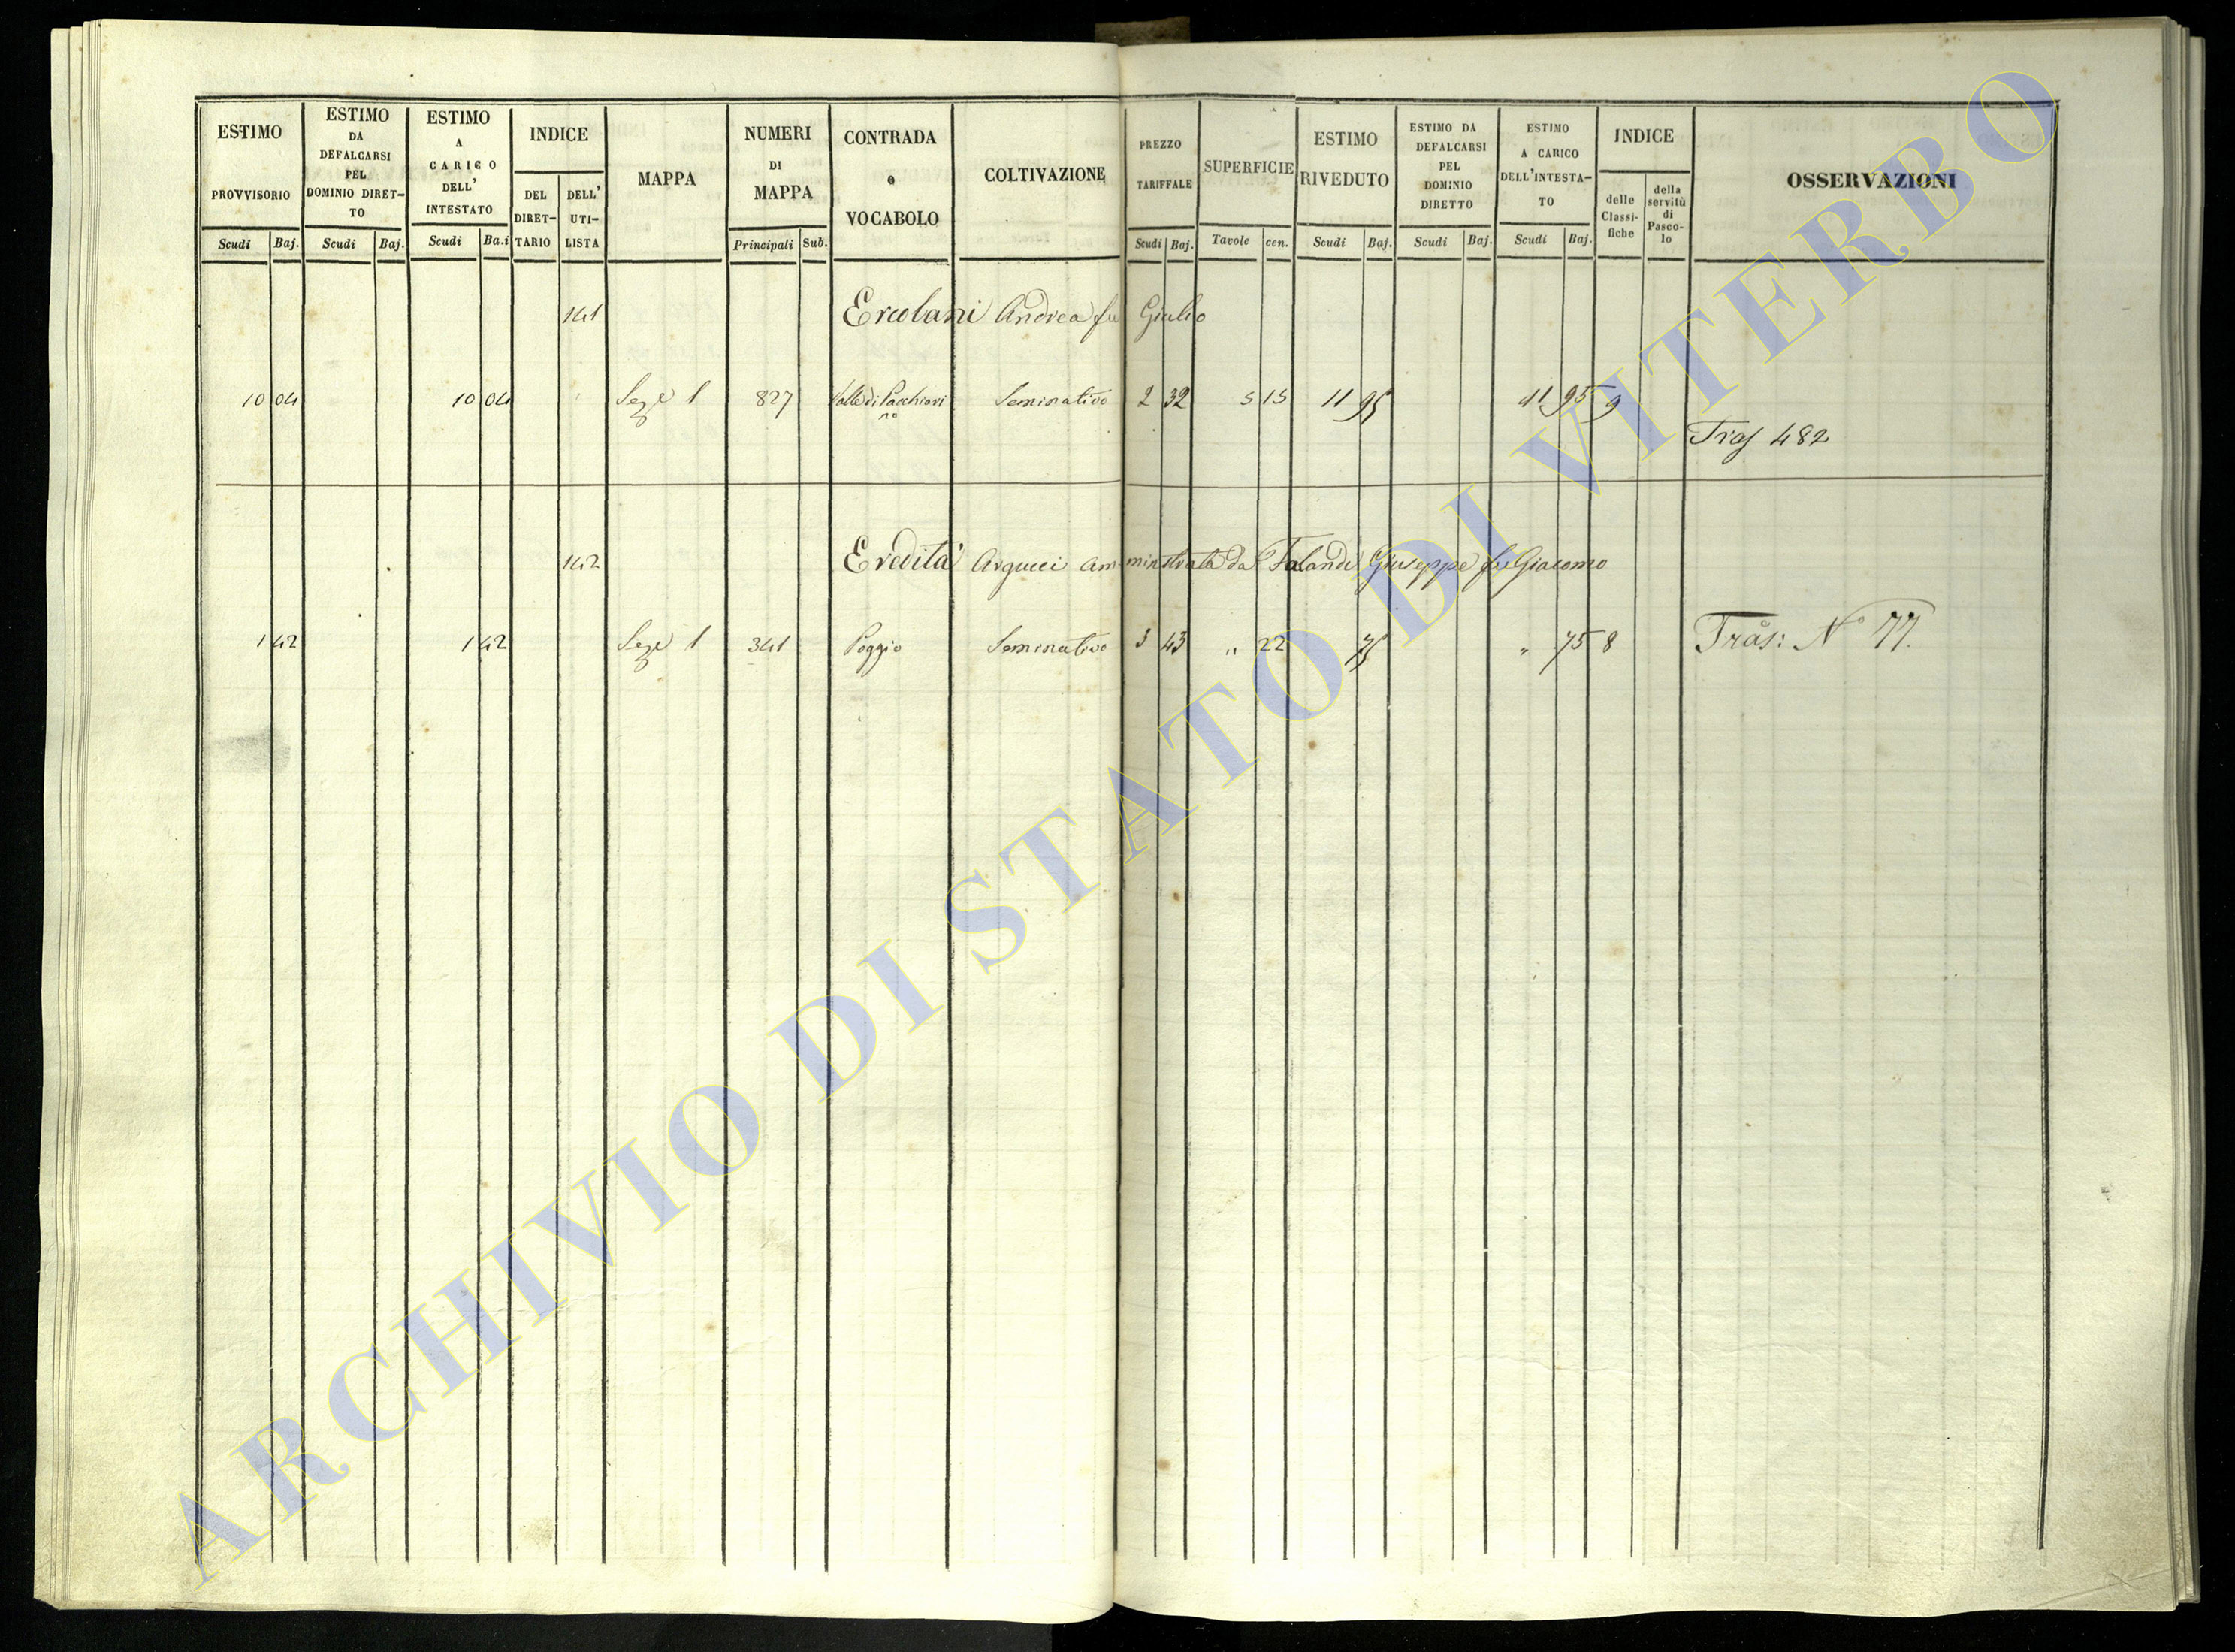 ESTIMO PROVVISORIO Scudi Baj.
ESTIMO DA DEFALCARSI PEL DOMINIO DIRET- TO Scudi Baj.
ESTIMO A CARICO DELL' INTESTATO Scudi Ba.i
INDICE DEL DIRET- TARIO DELL' UTI- LISTA
MAPPA
NUMERI DI MAPPA Principali Sub.
CONTRADA o VOCABOLO
COLTIVAZIONE
PREZZO TARIFFALE Scudi Baj.
SUPERFICIE Tavole cen.
ESTIMO RIVEDUTO Scudi Baj.
ESTIMO DA DEFALCARSI PEL DOMINIO DIRETTO Scudi Baj.
ESTIMO A CARICO DELL'INTESTA- TO Scudi Baj.
INDICE delle Classi- fiche della servitù di Pasco- lo
OSSERVAZIONI
141 Ercolani Andrea fu Giulio
10 04 10 04 Sez.e 1 827 Valle di Seminativo 2 32 5 15 11 95 11 95 9
Tras 482
142 Eredità Argucci amministrata da Falandi Giuseppe fu Giacomo
1 42 1 42 Sez.e 1 341 Poggio Seminativo 3 43 " 22 75 " 75 8 Tras: N° 77.
ARCHIVIO DI STATO DI VITERBO